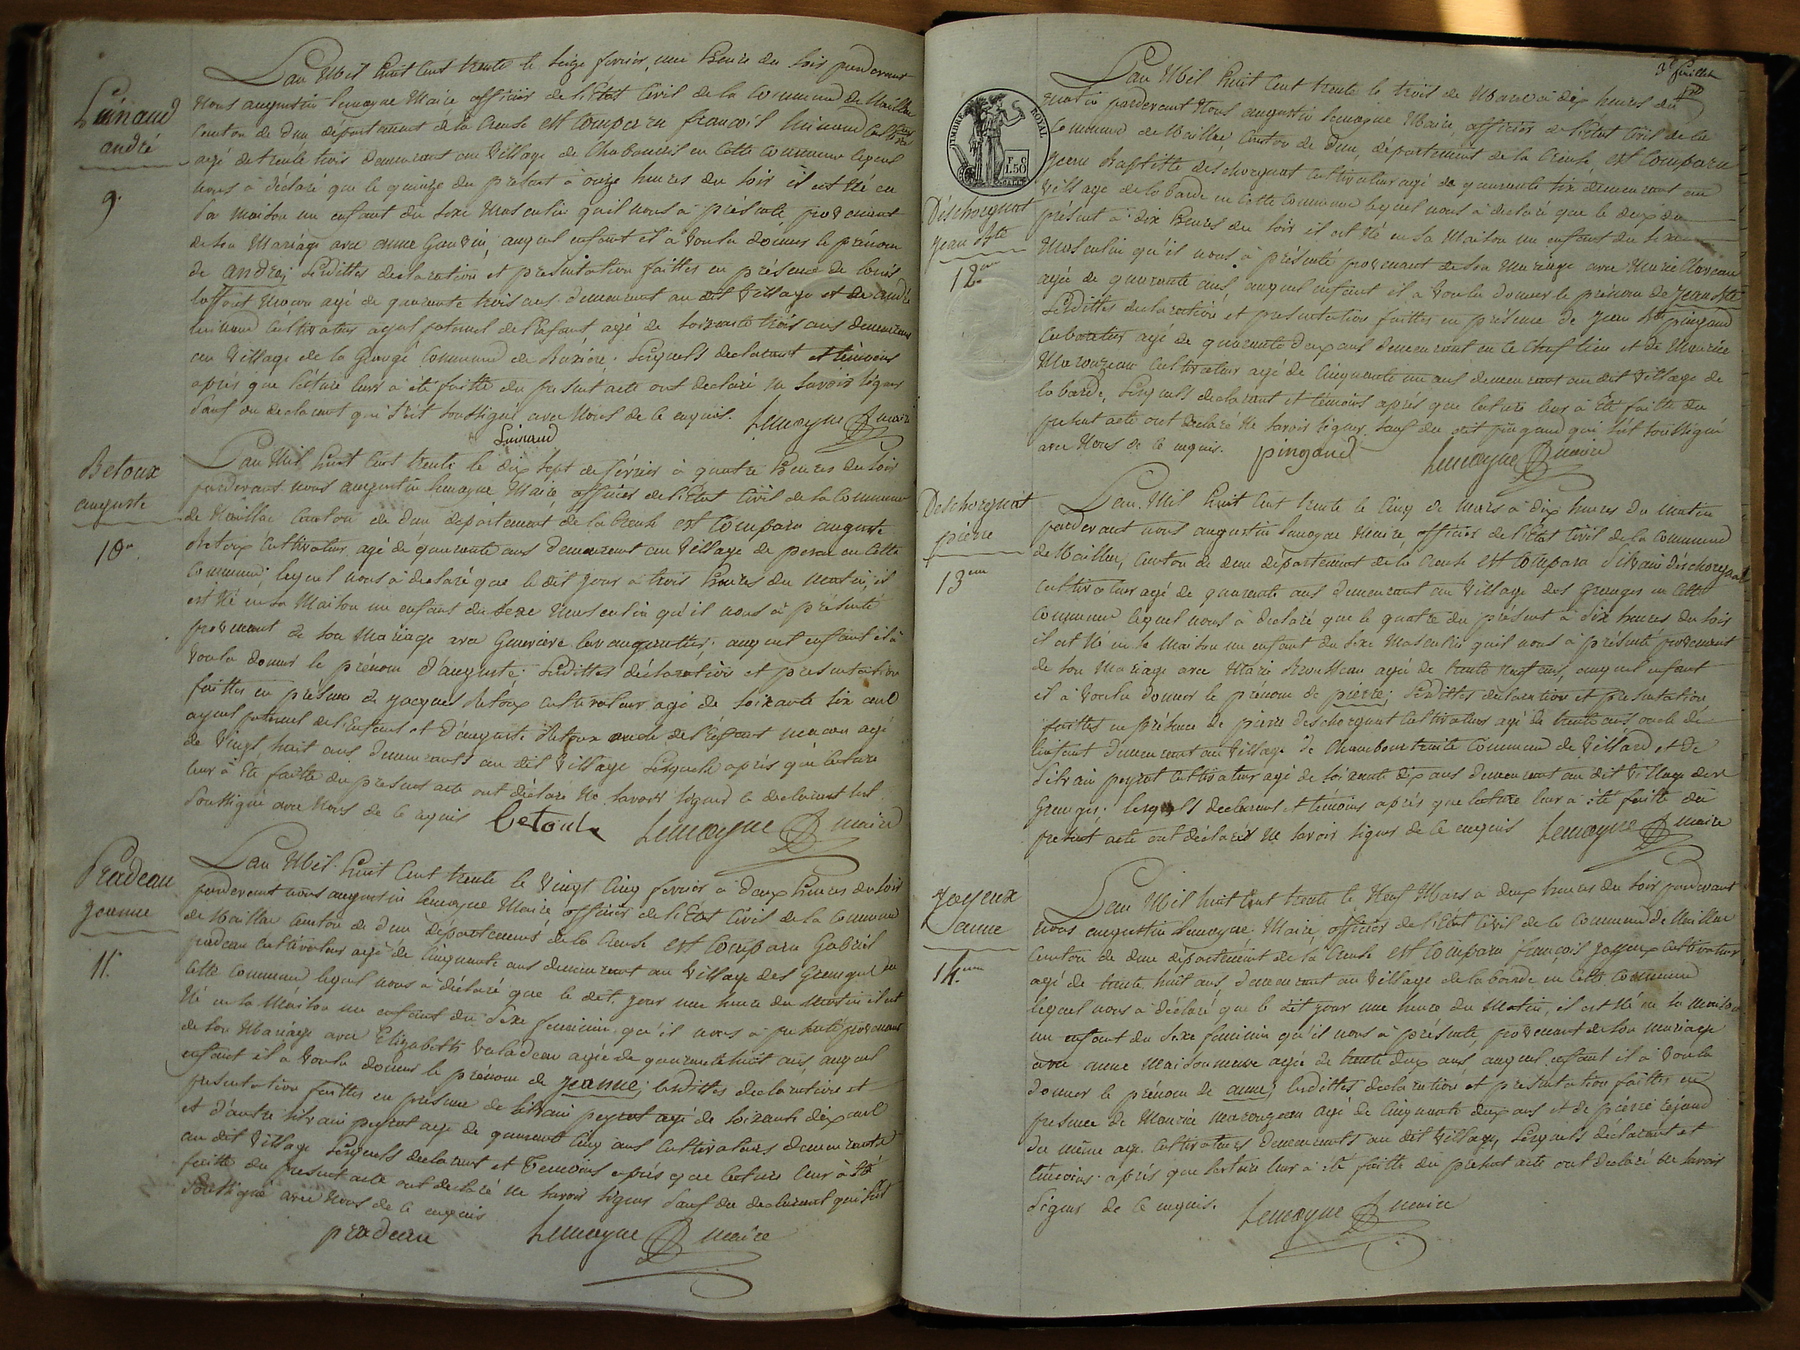 Luinaud
andré
9.
L'an Mil huit Cent trente le Seize fevrier, une heure du Soir pardevant
Nous augustin Lemoyne Maire officier de l'Etat Civil de la Commune de Naillac
Canton de dun département de la Creuse est Comparu françois luinaud
agé de trente trois demeurant au Village de en cette Commune lequel
nous à déclaré que le quinze du présent à onze heures du Soir il est Né en
Sa maison un enfant du Sexe Masculin qu'il nous à présenté provenant
de son Mariage avec anne auquel enfant il à voulu donner le prénom
de andré; Lesdittes déclaration et présentation faittes en présence de louis
Maçon agé de quarante trois ans demeurant au dit Village et de andré
luinaud Cultivateur ayeul paternel de l'enfant agé de Soixante trois ans demeurant
au Village de la Grange Commune de Lesquels déclarant et témoins
après que lecture leur à été faitte du présent acte ont déclaré ne Savoir Signer
Sauf du déclarant qui S'est Soussigné avec Nous de ce enquis. Lemoyne maire
Luinaud
Betoux
auguste
10e
L'an Mil huit Cent trente le dix Sept de février à quatre heures du Soir
pardevant nous augustin Lemoyne Maire officier de l'Etat Civil de la Commune
de Naillac Canton de dun département de la Creuse est Comparu auguste
Betoux Cultivateur agé de quarante ans demeurant au Village de en cette
Commune; lequel nous à déclaré que le dit jour à trois heures du matin, il
est Né en Sa Maison un enfant du Sexe Masculin qu'il nous à présenté
provenant de Son Mariage avec auquel enfant il à
voulu donner le prénom d'auguste; Lesdittes déclaration et présentation
faittes en présence de jacques Betoux cultivateur agé de Soixante Six ans
ayeul paternel de l'Enfant et d'auguste Betoux oncle de l'Enfant maçon agé
de Vingt huit ans demeurants au dit Village Lesquels après que lecture
leur à été faitte du présent acte ont déclaré Ne Savoir Signer le déclarant S'est
Soussigné avec Nous de ce enquis betoux Lemoyne maire
Pradeau
jeanne
11.
L'an Mil huit Cent trente le Vingt Cinq fevrier à deux heures du Soir
pardevant nous augustin Lemoyne Maire officier de l'Etat Civil de la Commune
de Naillac Canton de dun département de la Creuse est Comparu Gabriel
pradeau cultivateur agé de Cinquante ans demeurant au Village des Granges en
cette Commune lequel nous à déclaré que le dit jour une heure du Matin il est
Né en Sa Maison un enfant du Sexe féminin qu'il nous à présenté provenant
de Son Mariage avec Elizabeth Valadeau agée de quarante huit ans, auquel
enfant il à Voulu donner le prénom de jeanne; lesdittes déclaration et
présentation faittes en présence de Silvain peyrot agé de Soixante dix ans
et d'autre Silvain peyrot agé de quarante Cinq ans Cultivateurs demeurants
au dit Village Lesquels déclarant et Temoins après que lecture leur à été
faitte du présent acte ont déclaré Ne Savoir Signer Sauf du déclarant qui S'est
Soussigné avec Nous de ce enquis
pradeau Lemoyne maire
3e feuillet
TIMBRE ROYAL
Déschorgnat
jean Bte
12em
L'an Mil huit Cent trente le trois de Mars à dix heures du
matin pardevant Nous augustin Lemoyne Maire officier de l'état Civil de la
Commune de Naillac, Canton de dun, département de la Creuse, est Comparu
jean Baptiste deschorgnat Cultivateur agé de quarante Six demeurant au
Village de la barde en cette Commune lequel nous à déclaré que le deux du
présent à dix heures du Soir il est Né en Sa Maison un enfant du Sexe
Masculin qu'il nous à présenté provenant de Son Mariage avec Marie
agée de quarante ans auquel enfant il à Voulu donner le prénom de jean Bte
Lesdittes déclaration et présentation faittes en présence de jean Bte pingaud
agé de quarante deux ans demeurant en ce Chef lieu et de Maurice
Marouzeau Cultivateur agé de Cinquante un ans demeurant au dit Village de
la barde, Lesquels déclarant et témoins après que lecture leur à Eté faitte du
présent acte ont déclaré Ne Savoir Signer Sauf du dit pingaud qui S'est Soussigné
avec Nous de ce enquis. pingaud Lemoyne maire
Deschorgnat
pierre
13em
L'an Mil huit Cent trente le Cinq de Mars à dix heures du Matin
pardevant nous augustin Lemoyne Maire officier de l'Etat Civil de la Commune
de Naillac, Canton de dun département de la Creuse est Comparu Silvain déschorgnat
Cultivateur agé de quarante ans demeurant au Village des Granges en cette
Commune lequel nous à déclaré que le quatre du présent à dix heures du Soir
il est Né en Sa Maison un enfant du Sexe Masculin qu'il nous à présenté provenant
de Son Mariage avec Marie agée de trente ans, auquel enfant
il à Voulu donner le prénom de pierre; Lesdittes déclaration et présentation
faittes en présence de pierre deschorgnat Cultivateur agé de trente ans oncle de
l'enfant demeurant au Village de Commune de Villard et de
Silvain peyrot Cultivateur agé de Soixante dix ans demeurant au dit Village des
Granges; lesquels déclarant et témoins après que lecture leur à été faitte du
présent acte ont déclaré Ne Savoir Signer de ce enquis Lemoyne maire
Joyeux
Anne
14em
L'an Mil huit Cent trente le Neuf Mars à deux heures du Soir pardevant
nous augustin Lemoyne Maire officier de l'Etat Civil de la Commune de Naillac
Canton de dun département de la Creuse est Comparu françois joyeux Cultivateur
agé de trente huit ans, demeurant au Village de la barde en cette Commune
lequel nous à déclaré que le dit jour une heure du Matin, il est Né en Sa maison
un enfant du Sexe féminin qu'il nous à présenté provenant de Son mariage
avec anne Maisonneuve agée de trente deux ans auquel enfant il à Voulu
donner le prénom de anne; lesdittes déclaration et présentation faittes en
présence de Maurice marouzeau agé de Cinquante deux ans et de pierre
du même age Cultivateurs demeurants au dit Village, Lesquels déclarant et
témoins après que lecture leur à été faitte du présent acte ont déclaré Ne Savoir
Signer de ce enquis. Lemoyne maire